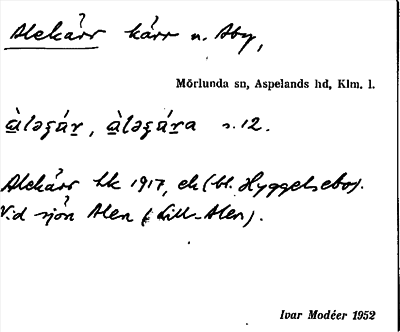 Alekärr kärr n. Aby,
Mörlunda sn, Aspelands hd, Klm. l.
s. 12.
Alekärr hk 1917, ek (bl. Hyggelsebo).
Vid sjön Alen (Lill-Alen).
Ivar Modéer 1952